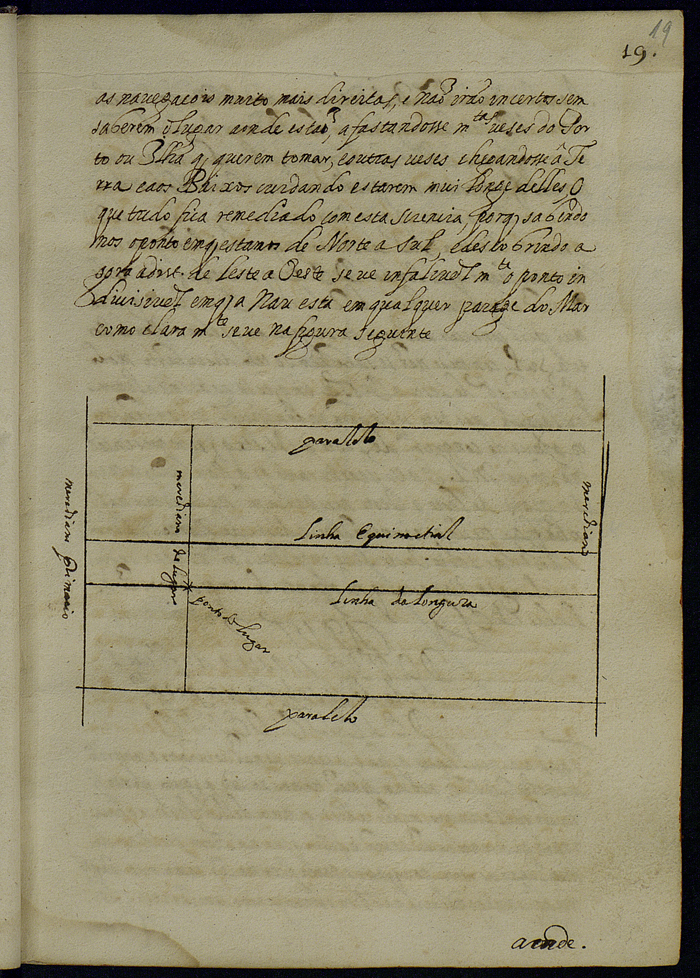 19
19.
as navegaçois muito mais direitas, e naõ irão incertos sem
saberem o lugar aonde estaõ, afastandosse m.tas veses do Por
to ou Ilha q̃ querem tomar, e outras veses chegandosse â Te
rra e aos Baixos cuidando estarem mui longe delles O
que tudo fica remediado com esta sciencia porq̃ sabendo
nos o ponto em q̃ estamos de Norte a Sul, e descobrindo a
dist. de Leste a Oeste se ve infalivel m.te o ponto in
divisivel em q̃ a Nau esta em qualquer parage do Mar
como clara m.te se ve na figura seguente
paralelo
merediano primario
merediano do lugar
merediano
Linha Equinoctial
Linha da longura
ponto do lugar
paralelo
aonde.